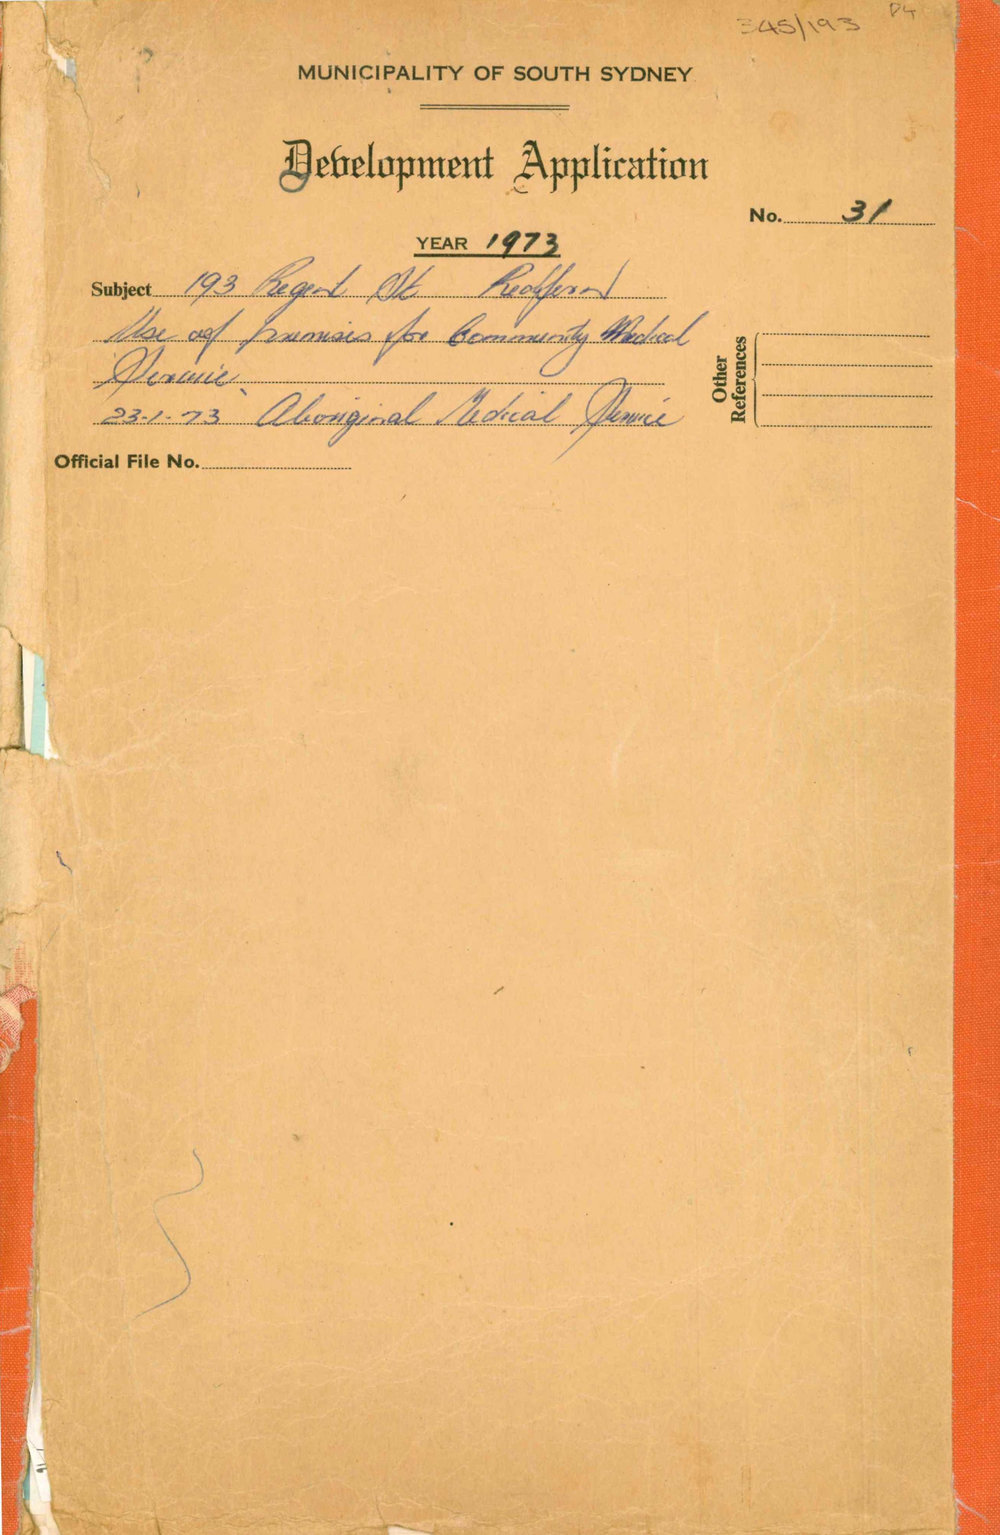 345/193 D4
MUNICIPALITY OF SOUTH SYDNEY
Development Application
No. 31
YEAR 1973
Subject 193 Regent St Redfern
Use of premises for Community Medical
Service
23-1-73 Aboriginal Medical Service
Other References
Official File No.